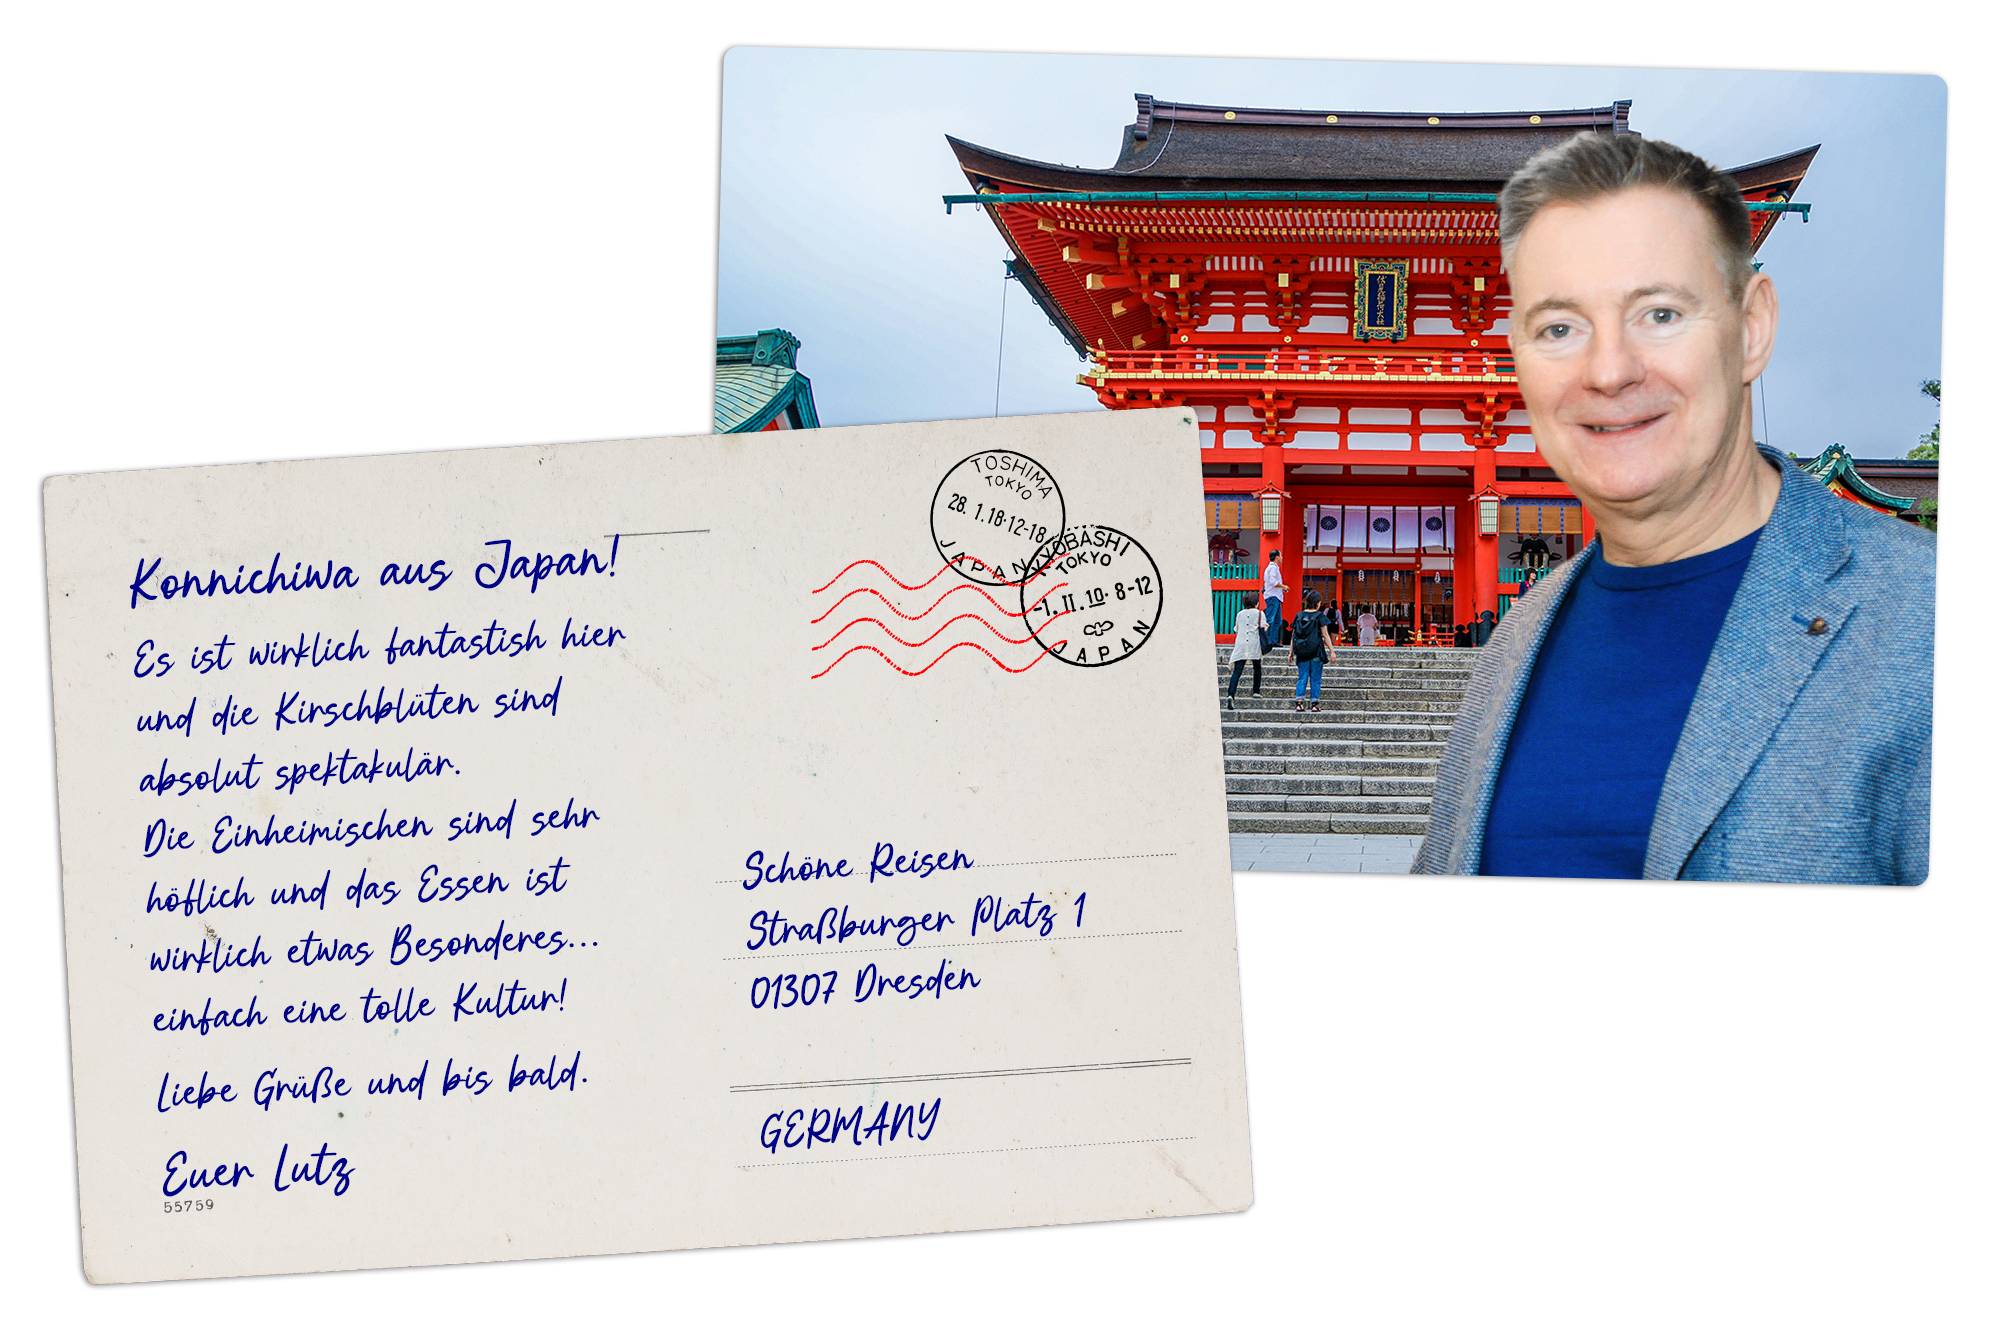 伏見稲荷大社
TOSHIMA
TOKYO
28. 1.18·12-18
JAPAN
KYOBASHI
TOKYO
-1. II. 10· 8-12
JAPAN
Konnichiwa aus Japan!
Es ist wirklich fantastish hier
und die Kirschblüten sind
absolut spektakulär.
Die Einheimischen sind sehr
höflich und das Essen ist
wirklich etwas Besonderes...
einfach eine tolle Kultur!
Liebe Grüße und bis bald.
Euer Lutz
55759
Schöne Reisen
Straßburger Platz 1
01307 Dresden
GERMANY